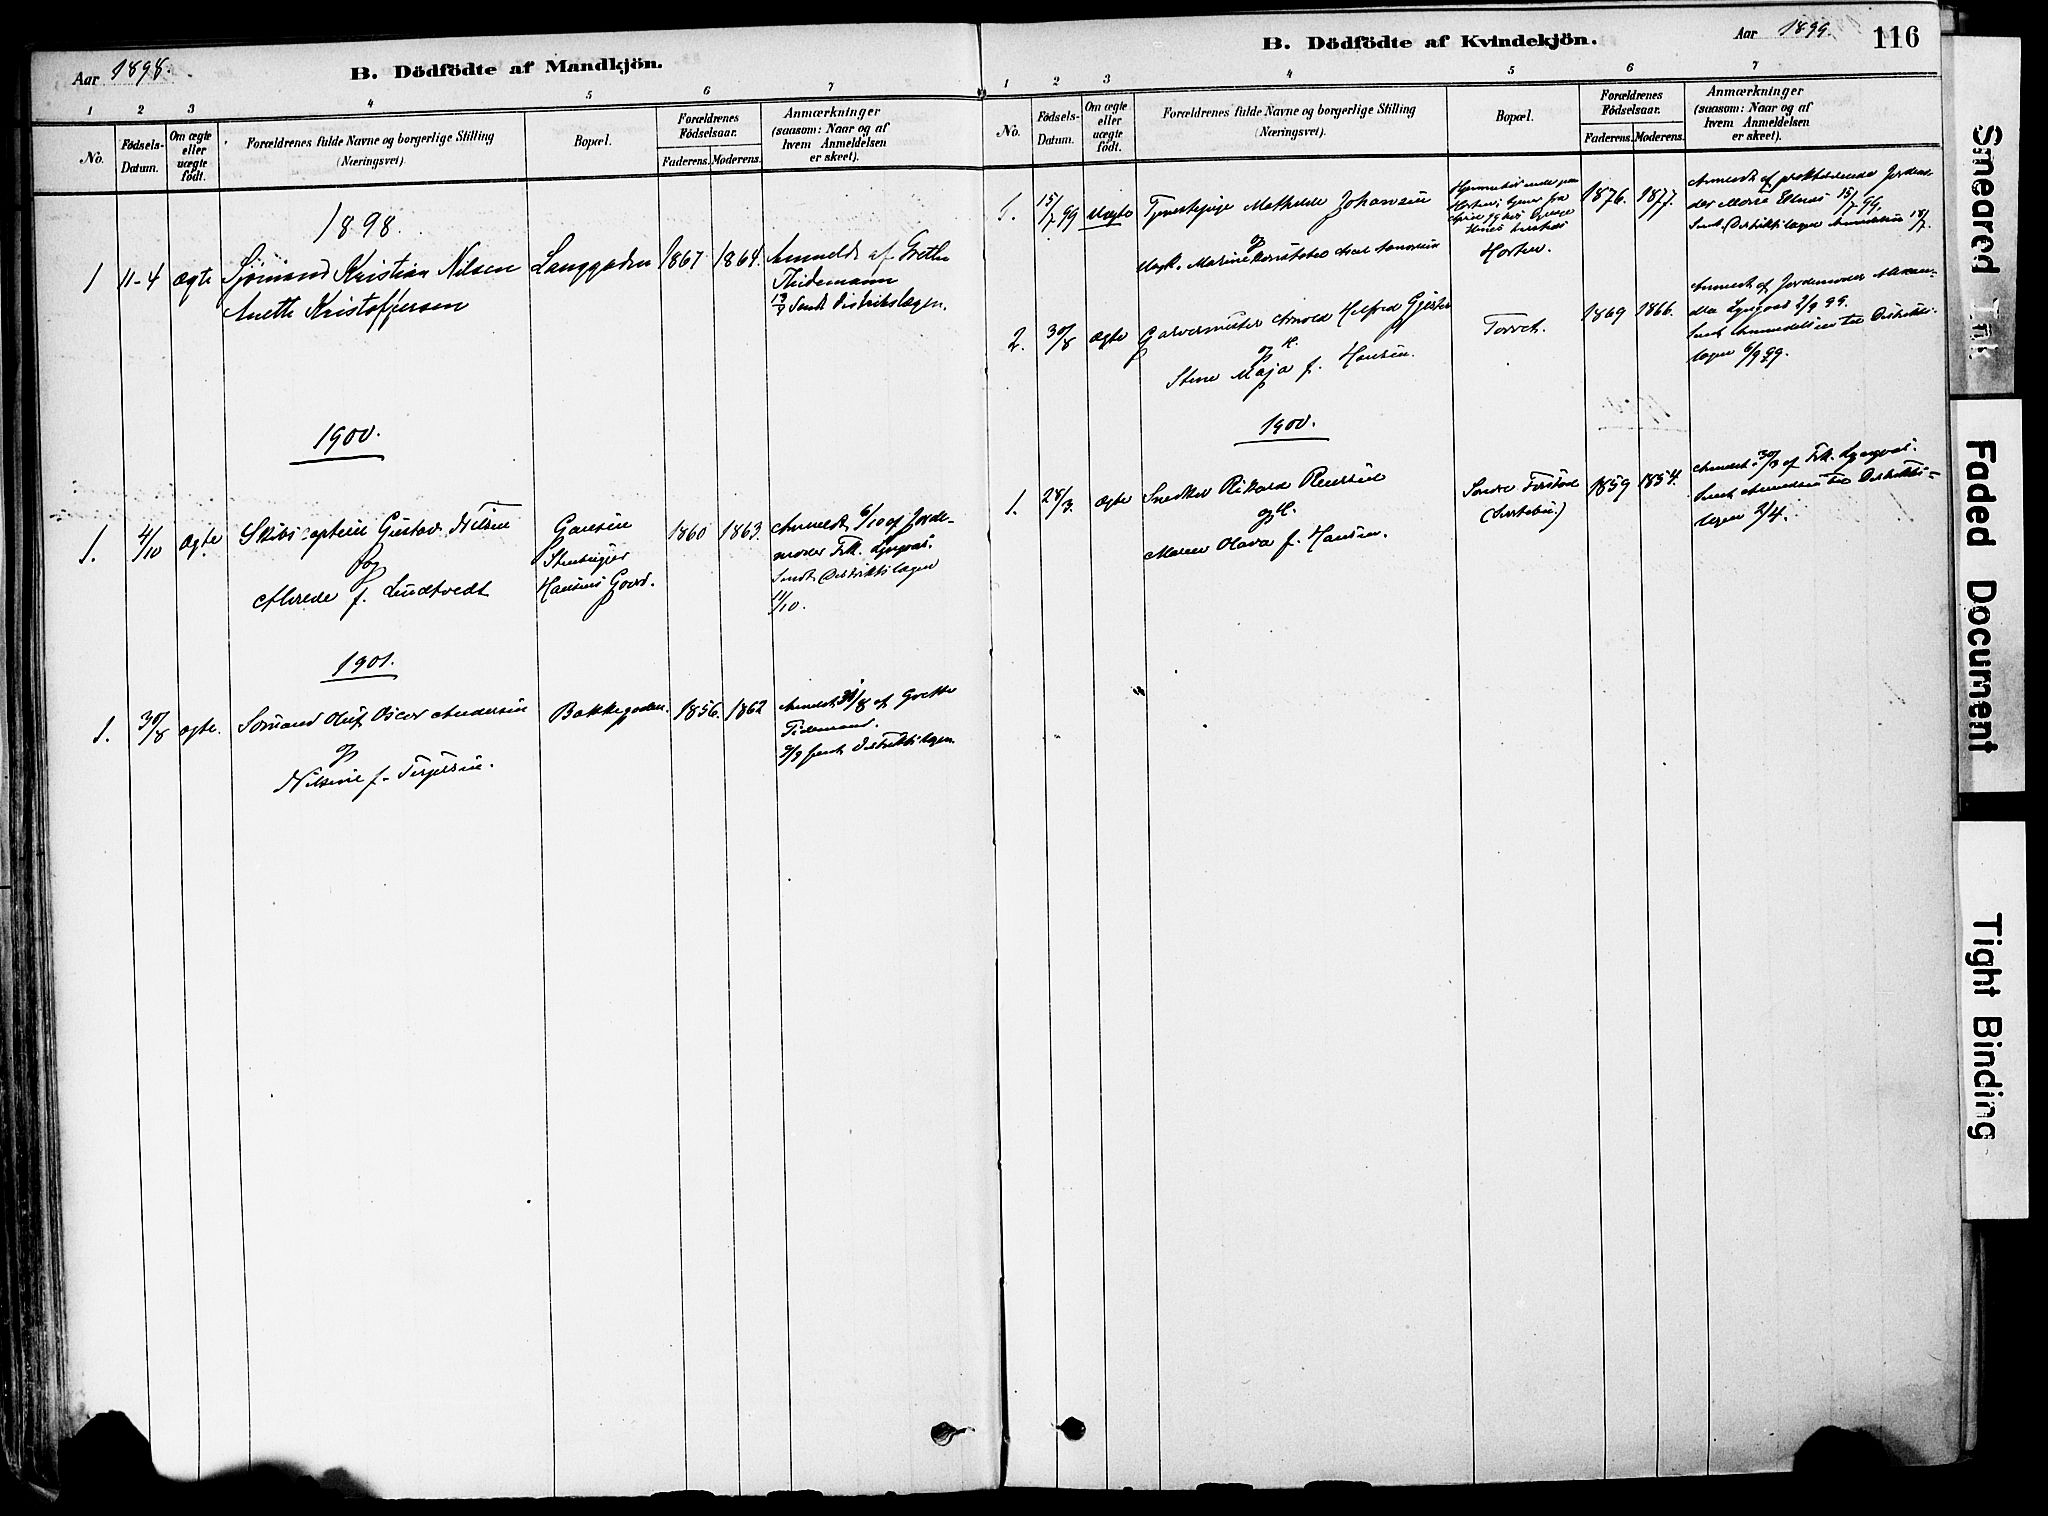 Aar 1898.
B. Dödfödte af Mandkjön.
1 2 3 4 5 6 7
No.
Födsels-
Datum.
Om ægte
eller
uægte
født.
Forældrenes fulde Navne og borgerlige Stilling
(Næringsvei).
Bopæl.
Forældrenes
Födselsaar.
Faderens. Moderens.
Anmærkninger
(saasom: Naar og af
hvem Anmeldelsen
er skeet).
1898.
1 11-4 ægte Sjømand Kristian Nilsen Langgaden 1867 1864. Anmeldt af Grethe
Anette Kristoffersen
Thidemann
Sendt distriktslægen.
1900.
1. 4/10 ægte Skibscaptein Gustav Nilsen
og
Alvede f. Lindtvedt
Gaasen
Stenbriger
Hansens Gaard.
1860 1863.
Anmeldt 6/10 af Jorde-
moder Frk. Lyngaas.
Sendt Distriktslægen
11/10.
1901.
1. 30/8 ægte. Sömand Oluf Oscar Andersen
og
Nilsine f. Terjesen.
Bakkegaden. 1856. 1862
Anmeldt 31/8 af Grethe
Tidemand.
3/9 sendt Distriktslægen.
B. Dödfödte af Kvindekjön.
Aar 1899.
116
1 2 3 4 5 6 7
No.
Födsels-
Datum.
Om ægte
eller
uægte
født.
Forældrenes fulde Navne og borgerlige Stilling
(Næringsvei).
Bopæl.
Forældrenes
Födselsaar.
Faderens. Moderens.
Anmærkninger
(saasom: Naar og af
hvem Anmeldelsen
er skeet).
1. 15/7 99 Uægte Tjenestepige Mathilde Johansen
og
Ungk.
Horten.
1876. 1877.
Anmeldt af praktiserende Jordemo-
15/7 99.
Sendt Distriktslægen Anmeldelsen 18/7.
2. 30/8 ægte Garvermester Arnold Helfred Gjerløv
og H.
Stine Maja f. Hansen.
Torvet. 1869 1866.
Anmeldt af Jordemoder
Lyngaas 2/9 99.
Sendt Anmeldelsen til Distrikts-
lægen 6/9 99.
1900.
1. 28/3. ægte Snedker Rikard Reiersen
og H.
Maren Olava f. Hansen.
Søndre
1859 1854.
Anmeldt 30/3 af Frk. Lyngaas.
Sendt Anmeldelsen til Distrikts-
lægen 2/4.
Smeared Ink
Faded Document
Tight Binding